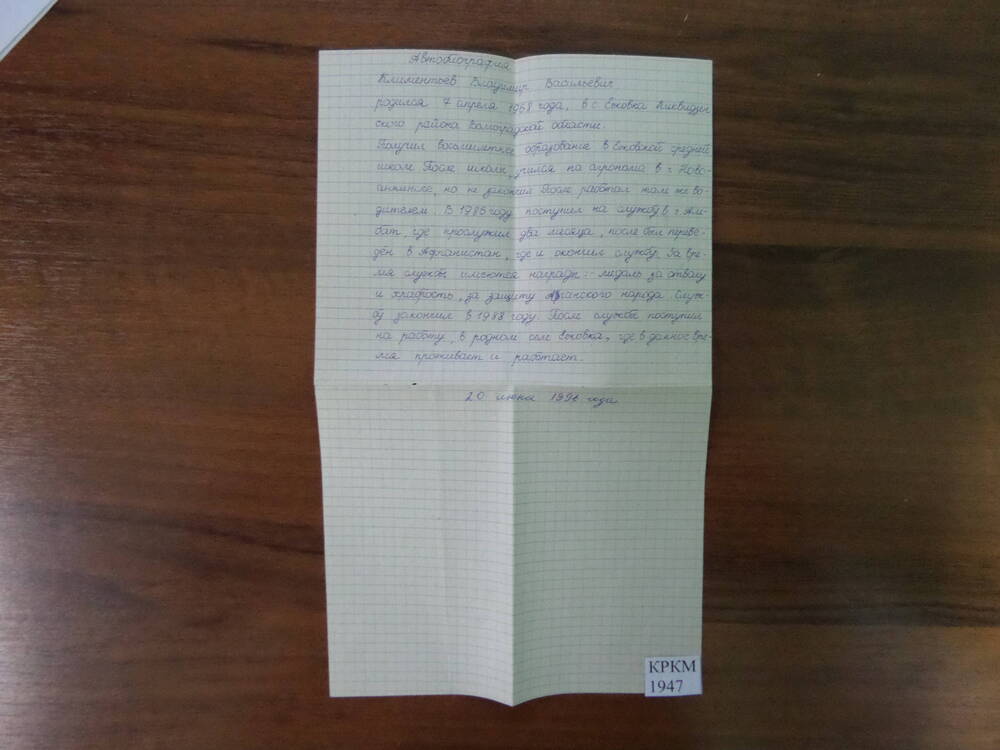 Автобиография
Климентьев Владимир Васильевич
родился 7 апреля 1968 года, в с Ежовка Киквидзен-
ского района Волгоградской области.
Получил восьмилетнее образование в Ежовской средней
школе После школы, учился на агронома в г Ново-
аннинске, но не закончил После работал там же во-
дителем. В 1986 году поступил на службу в г.
бат где прослужил два месяца, после был переве-
дён в Афганистан, где и окончил службу. За вре-
мя службы имеются награды: медаль за отвагу
и храбрость, за защиту Афганского народа Служ-
бу закончил в 1988 году. После службы поступил
на работу, в родном селе Ежовка, где в данное вре-
мя проживает и работает.
20 июня 1996 года
КРКМ
1947